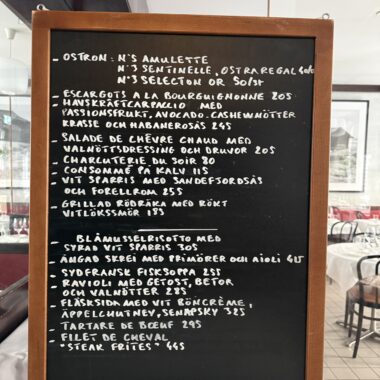 - OSTRON: N°5 AMULETTE
N°3 SENTINELLE, OSTRAREGAL
N°3 SELECTON OR 50/ST
- ESCARGOTS A LA BOURGUIGNONNE 205
- HAVSKRÄFTCARPACCIO MED
PASSIONSFRUKT, AVOCADO, CASHEWNÖTTER
KRASSE OCH HABANEROSÅS 245
- SALADE DE CHÈVRE CHAUD MED
VALNÖTTSDRESSING OCH DRUVOR 205
- CHARCUTERIE DU SOIR 80
- CONSOMMÉ PÅ KALV 115
- VIT SPARRIS MED SANDEFJORDSÅS
OCH FORELLROM 255
- GRILLAD RÖDRÄKA MED RÖKT
VITLÖKSSMÖR 185
- BLÅMUSSELRISOTTO MED
SYRAD VIT SPARRIS 305
- ÅNGAD SKREI MED PRIMÖRER OCH AIOLI 415
- SYDFRANSK FISKSOPPA 255
- RAVIOLI MED GETOST, BETOR
OCH VALNÖTTER 285
- FLÄSKSIDA MED VIT BÖNCRÈME,
ÄPPELCHUTNEY, SENAPSKY 325
- TARTARE DE BŒUF 295
- FILET DE CHEVAL
"STEAK FRITES" 445